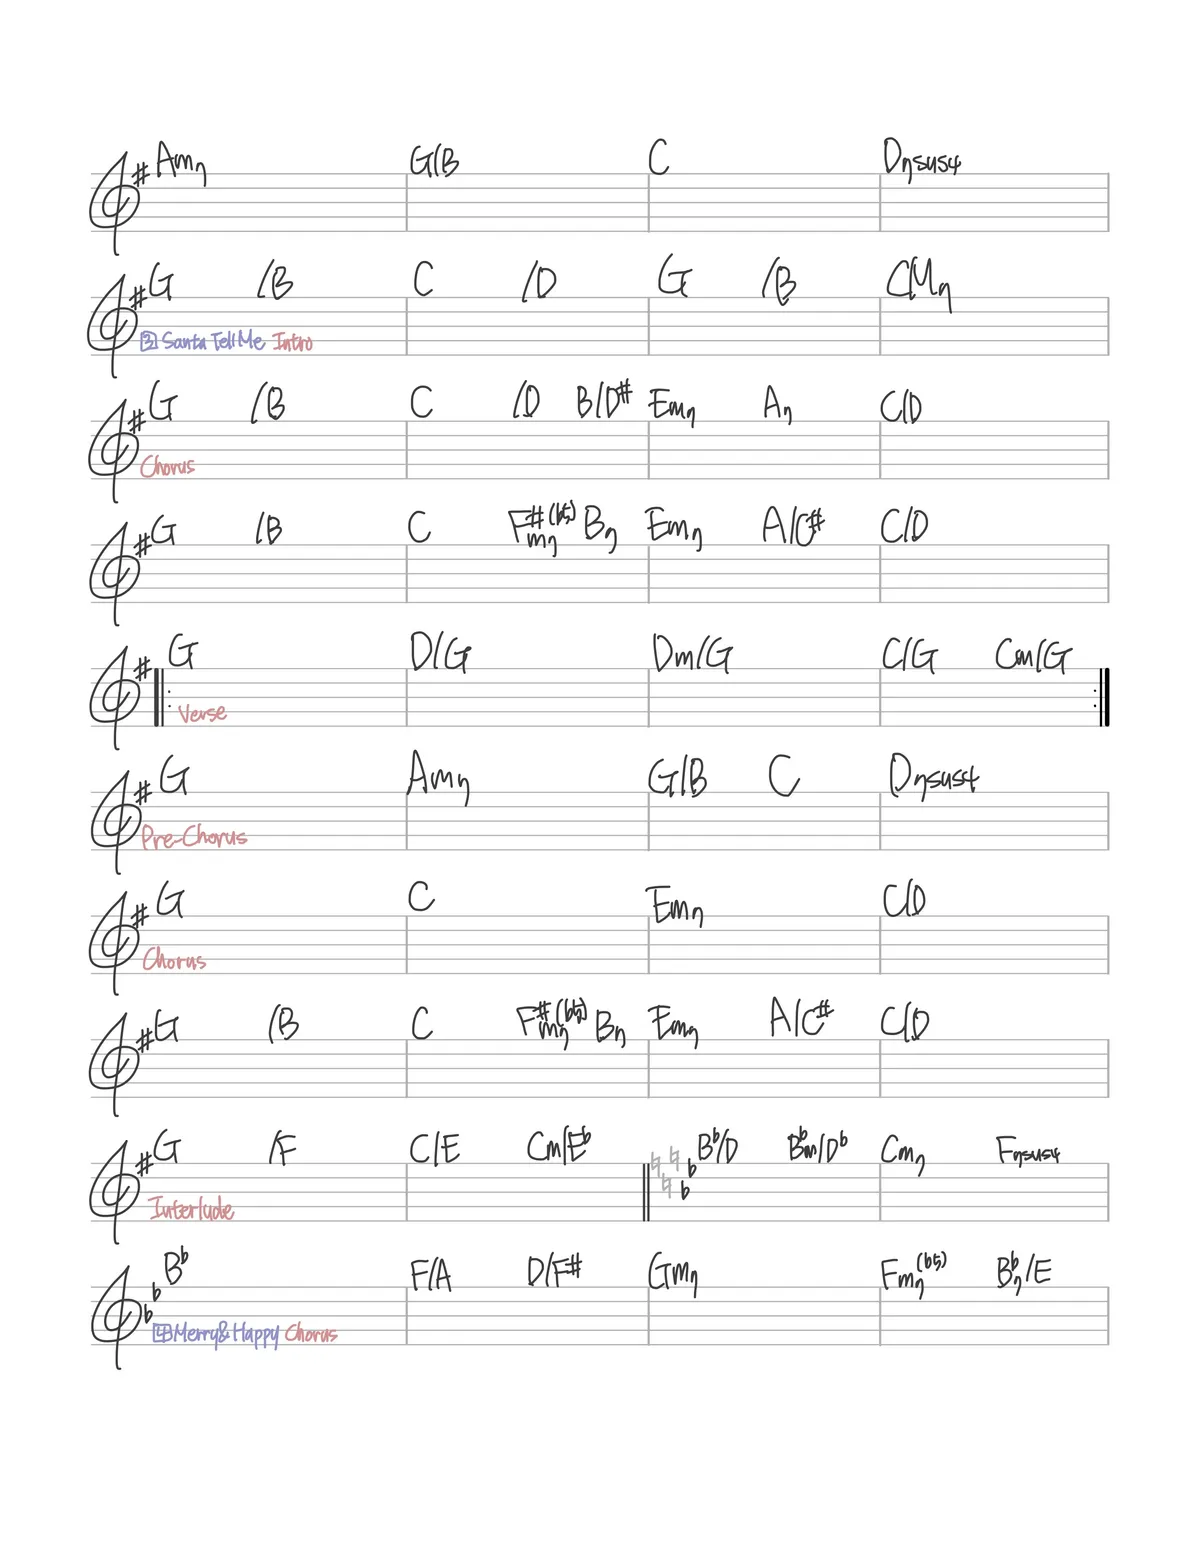 Am7 G/B C D7sus4
G /B C /D G /B CM7
3 Santa Tell Me Intro
G /B C /D B/D# Em7 A7 C/D
Chorus
G /B C F#m7(b5) B7 Em7 A/C# C/D
G D/G Dm/G C/G Cm/G
Verse
G Am7 G/B C D7sus4
Pre-Chorus
G C Em7 C/D
Chorus
G /B C F#m7(b5) B7 Em7 A/C# C/D
G /F C/E Cm/Eb Bb/D Bbm/Db Cm7 F7sus4
Interlude
Bb F/A D/F# Gm7 Fm7(b5) Bb7/E
4 Merry&Happy Chorus